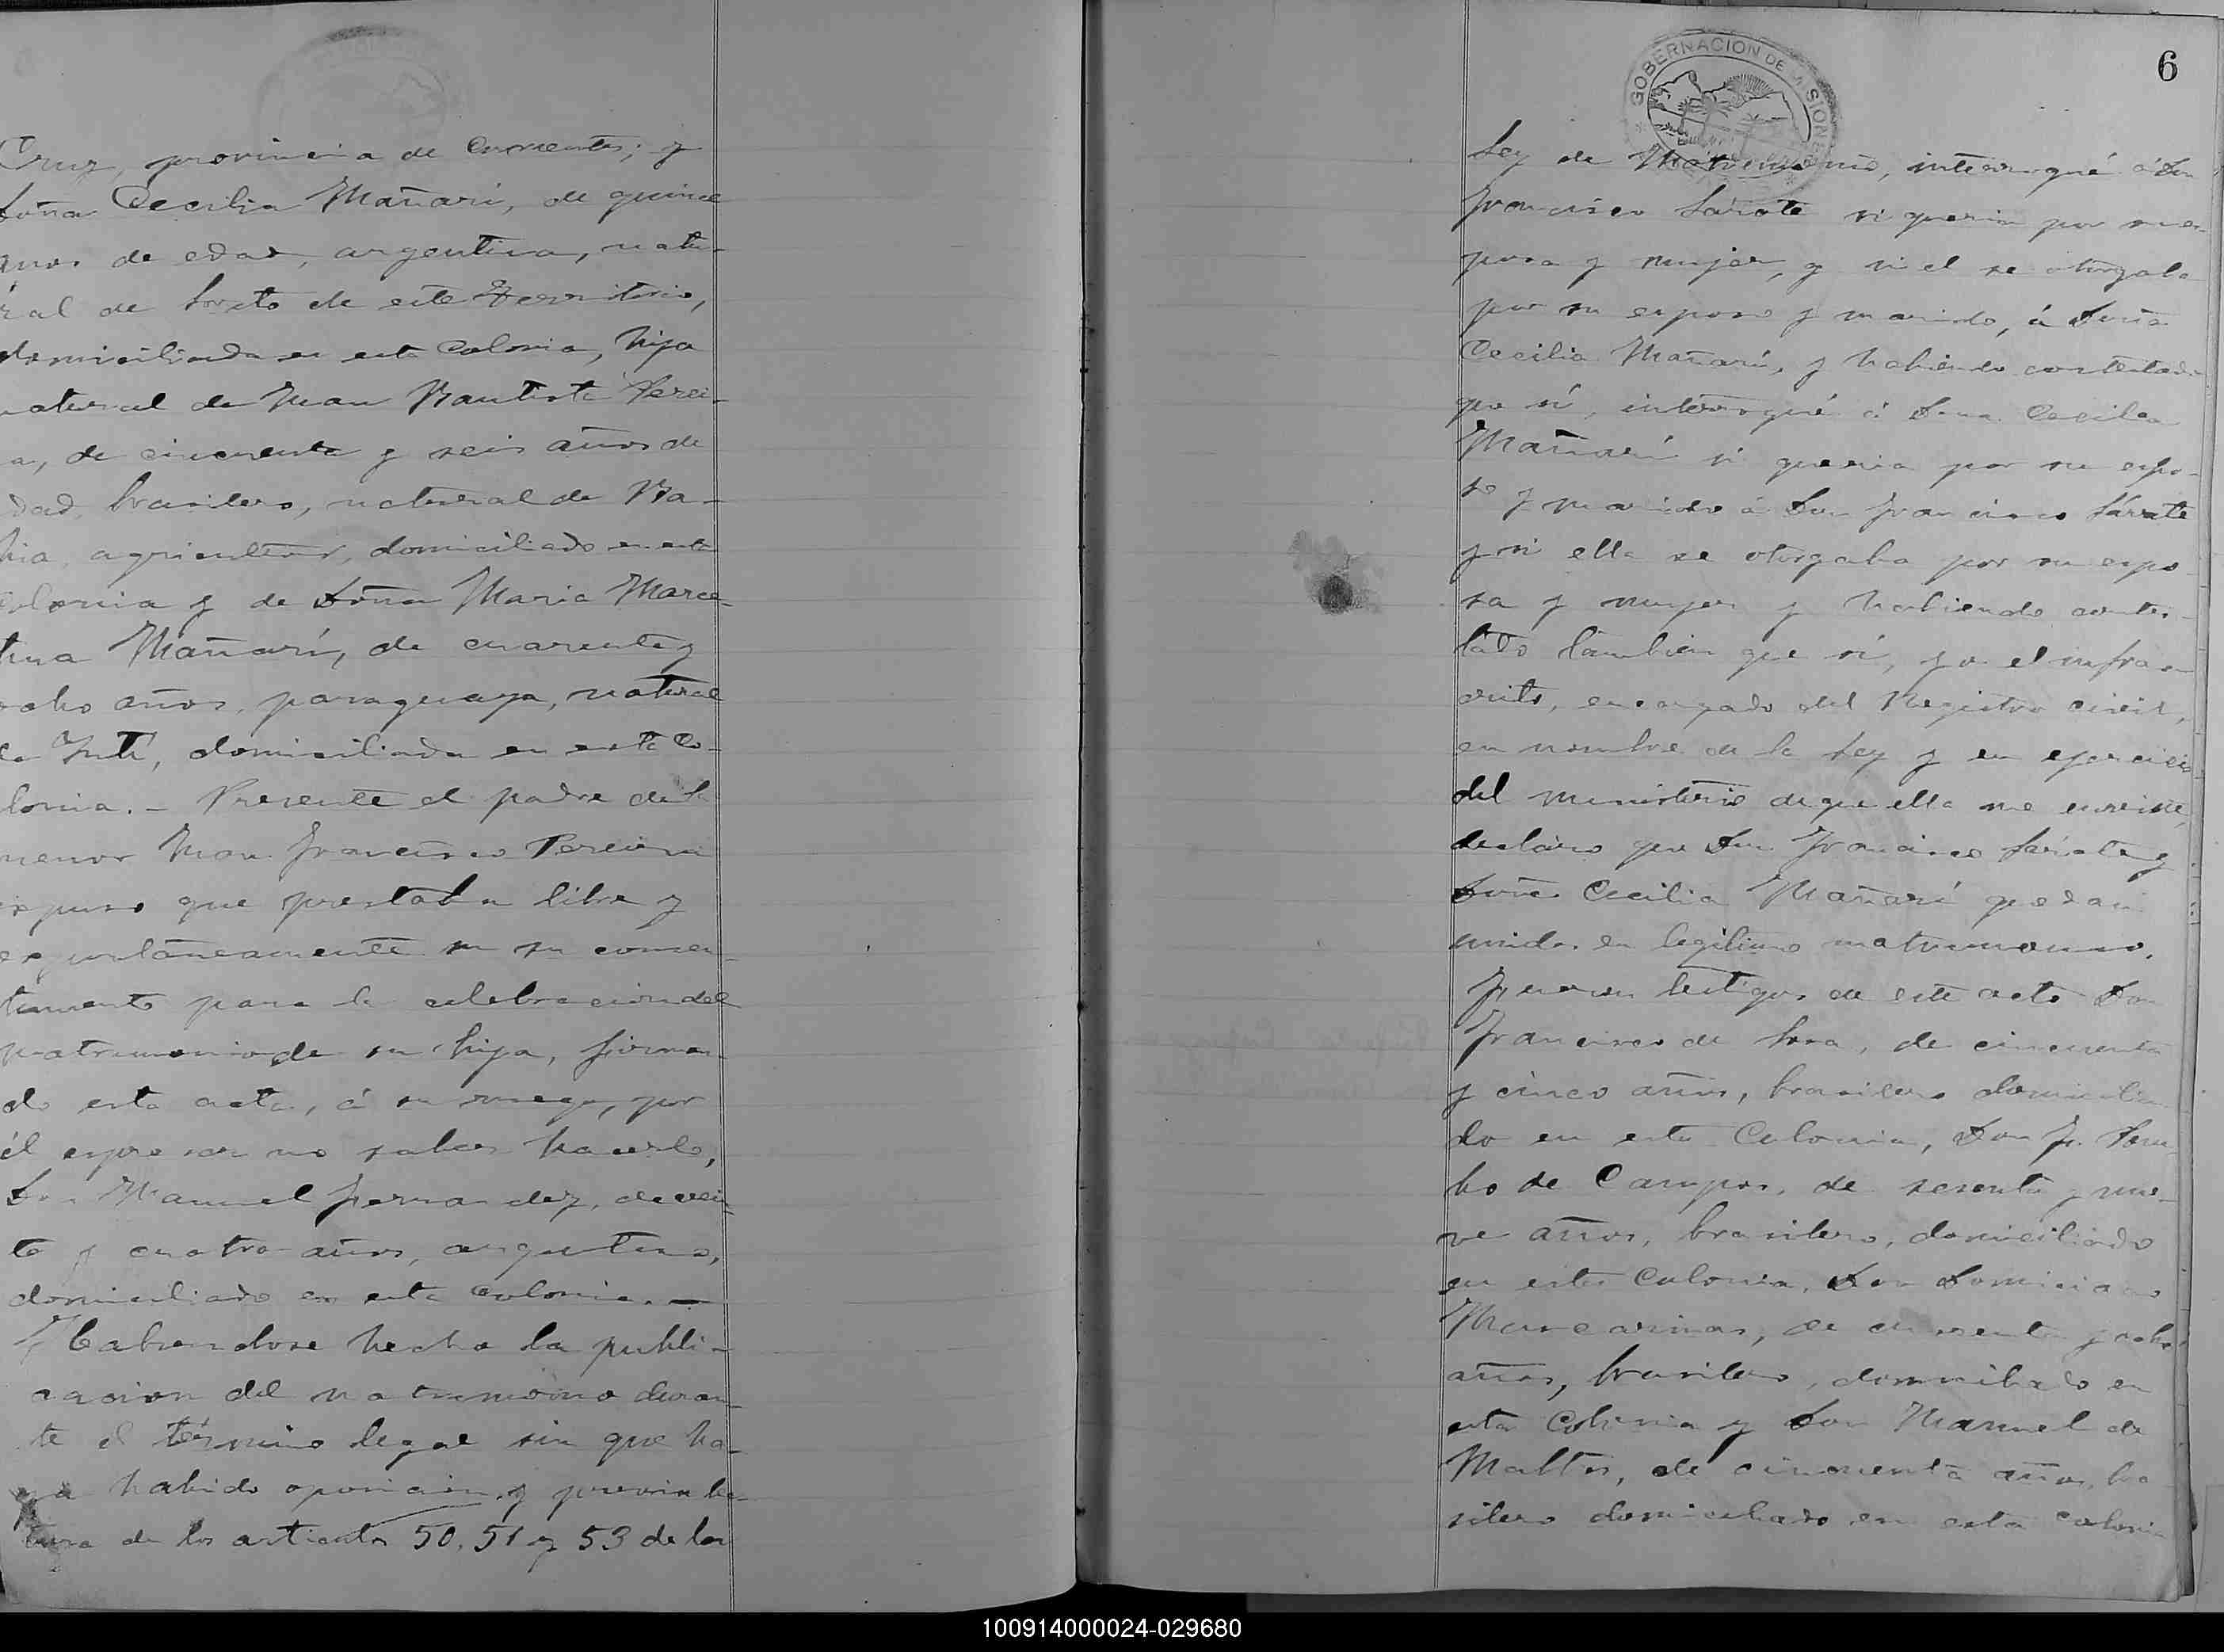 Cruz, provincia de Corrientes; y
Doña Cecilia Mañarí, de quince
años de edad, argentina, natu-
ral de Loreto de este Territorio,
domiciliada en esta Colonia, hija
natural de Juan Bautista Perei-
a, de cincuenta y seis años de
edad, brasilero, natural de Ba-
hia, agricultor, domiciliado en esta
Colonia y de Doña Maria Marce-
lina Mañarí, de cuarenta y
ocho años, paraguaya, natural
de Yuti, domiciliada en esta Co-
lonia. - Presente el padre de la
menor Juan Francisco Pereira
expuso que prestaba libre y
espontáneamente su su consen-
timiento para la celebracion del
matrimonio de su hija, firman-
do esta acta, á su ruego, por
él expresar no saber hacerlo,
Don Manuel Fernandez, de vein-
te y cuatro años, argentino,
domiciliado en esta Colonia. —
Habiendose hecho la publi-
cacion del matrimonio duran-
te el término legal sin que ha-
ya habido oposicion, y previa lec-
tura de los articulos 50, 51 y 53 de la
6
GOBERNACION DE MISIONES
Ley de Matrimonio, interrogué á Don
Francisco Sárate si queria por su es-
posa y mujer, y si el se otorgaba
por su esposo y marido, á Doña
Cecilia Mañarí, y habiendo contestado
que sí, interrogué á Doña Cecilia
Mañarí si queria por su espo-
so y marido á Don Francisco Sárate
y si ella se otorgaba por su espo-
sa y mujer y habiendo contes-
tado tambien que sí, yo el infras-
crito, encargado del Registro civil,
en nombre de la Ley y en ejercicio
del ministerio de que ella me enviste,
declaro que Don Francisco Sárate y
Doña Cecilia Mañarí quedan
unidos en legítimo matrimonio.
Fueron testigos de este acto Don
Francisco de Sosa, de cincuenta
y cinco años, brasilero domicilia-
do en esta Colonia, Don F.
de Campos, de sesenta y nue-
ve años, brasilero, domiciliado
en esta Colonia, Don Domiciano
de cuarenta y ocho
años, brasilero, domiciliado en
esta Colonia y Don Manuel de
Mattos, de cincuenta años, bra-
silero domiciliado en esta Colonia
100914000024-029680